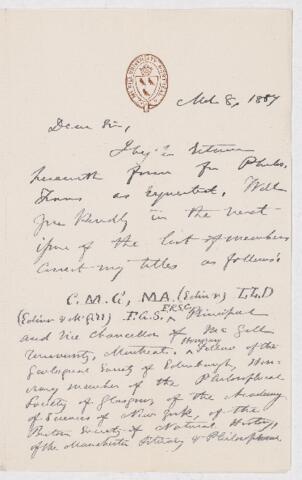 McGILL UNIVERSITY MONTREAL
Mch 8, 1887
Dear Sir,
I beg to return
herewith form for Philos.
Trans as requested. Will
you kindly in the next
issue of the list of members
correct my titles as follows:
C.M.G., M.A. (Edinr) LL.D
(Edinr & McGill) F.G.S. F.R.S.C. Principal
and Vice Chancellor of McGill
University, Montreal. Honorary Fellow of the
Geological Society of Edinburgh, Hon-
orary member of the Philosophical
Society of Glasgow, of the Academy
of Sciences of New York, of the
Boston Society of Natural History,
of the Manchester Literary & Philosophical